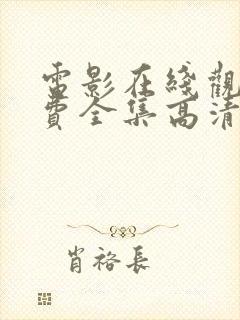 電影在綫觀
費全集高清
肖裕長